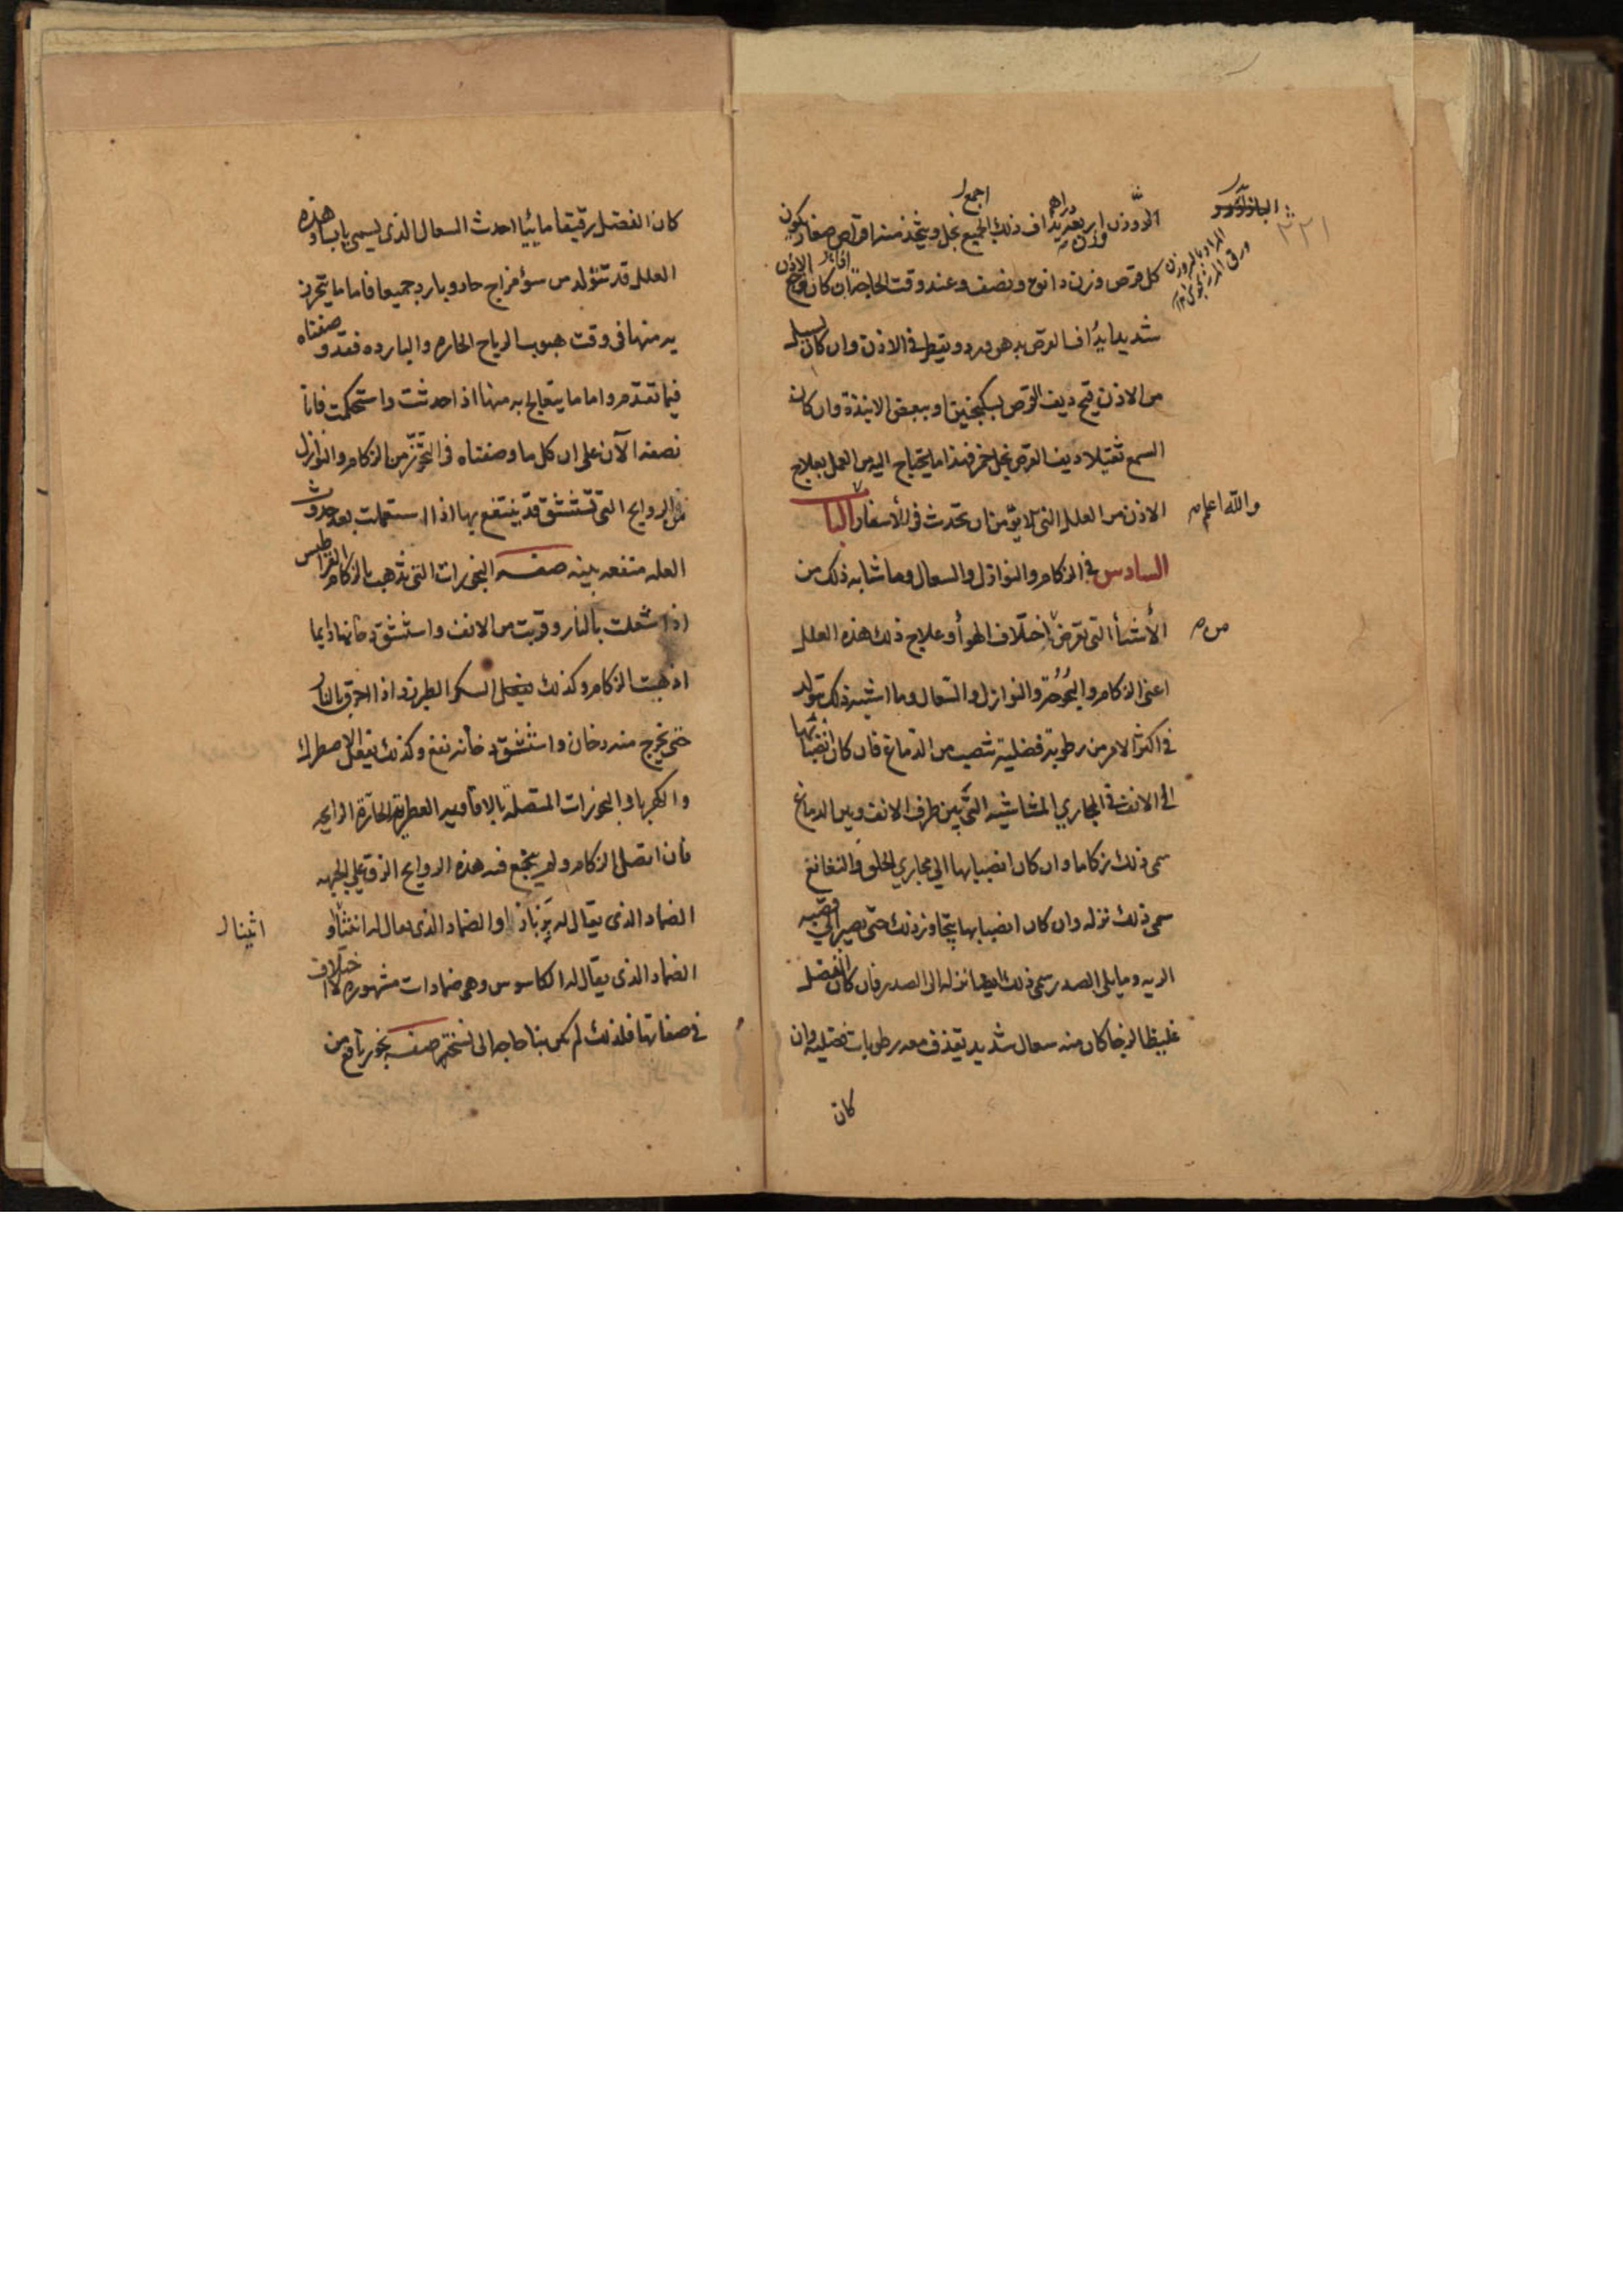 وزن اربعة دراهم يداف ذلك الجميع بخل ويتخذ منه اقراص صغار يكون
كل قرص وزن دانق ونصف وعند وقت الحاجة ان كان وجع الاذن
شديدا يداف القرص بدهن ورد ويقطر في الاذن وان كان يسيل
من الاذن قيح ديف القرص بسكنجبين او ببعض الانبذة وان كان
السمع ثقيلا ديف القرص بخل خمر فهذا ما يحتاج اليه من العمل بعلاج
الاذن من العلل التي لا يؤمن ان تحدث في الأسفار الباب
والله اعلم
السادس في الزكام والنوازل والسعال وما شابه ذلك من
الأشيأ التي تعرض من اختلاف الهوأ وعلاج ذلك هذه العلل
اعني الزكام والبحوحة والنوازل والسعال وما اشبه ذلك تتولد
في اكثر الامر من رطوبة فضلية تنصب من الدماغ فان كان انصبابها
الى الانف في المجاري المشاشية التي بين طرف الانف وبين الدماغ
سمى ذلك زكاما وان كان انصبابها الي مجاري الحلق والنغانغ
سمى ذلك نزله وان كان انصبابها يتجاوز ذلك حتى يصير الي قصبه
الريه وما يلى الصدر سمى ذلك ايضا نزله الى الصدر فان كان الفضل
غليظا لزجا كان منه سعال شديد يقذف معه رطوبات فضليه وان
كان
كان الفضل رقيقا مائيا احدث السعال الذى يسمى يابسا وهذه
العلل قد تتولد من سؤ مزاج حار وبارد جميعا فاما ما يتحرز
به منها فى وقت هبوب الرياح الحاره والبارده فقد وصفناه
فيما تقدم واما ما يتعالج به منها اذا حدثت واستحكمت فانا
نصفه الآن على ان كل ما وصفناه في التحرّز من الزكام والنوازل
من الروايح التى تستنشق قد ينتفع بها اذا استعملت بعد حدوث
العله منفعه بينه صفه البخورات التى تذهب بالزكام القراطيس
اذا شعلت بالنار وقربت من الانف واستنشق دخانها دايما
اذهبت الزكام وكذلك يفعل السكر الطبرزد اذا احرق بالنار
حتى يخرج منه دخان واستنشق دخانه نفع وكذلك يفعل الاصطرك
والكهربا والبخورات المتصلة بالافاويه العطرية الحارّة الرايحه
فان اتصل الزكام ولم ينجع فيه هذه الروايح الزق علي الجبهه
الضماد الذى يقال له بربناذ او الضماد الذى يقال له
الضماد الذى يقال له الكاسوس وهى ضمادات مشهوره لا اختلاف
في صفاتها فلذلك لم يكن بنا حاجه الى نسختها صفه بخور نافع من